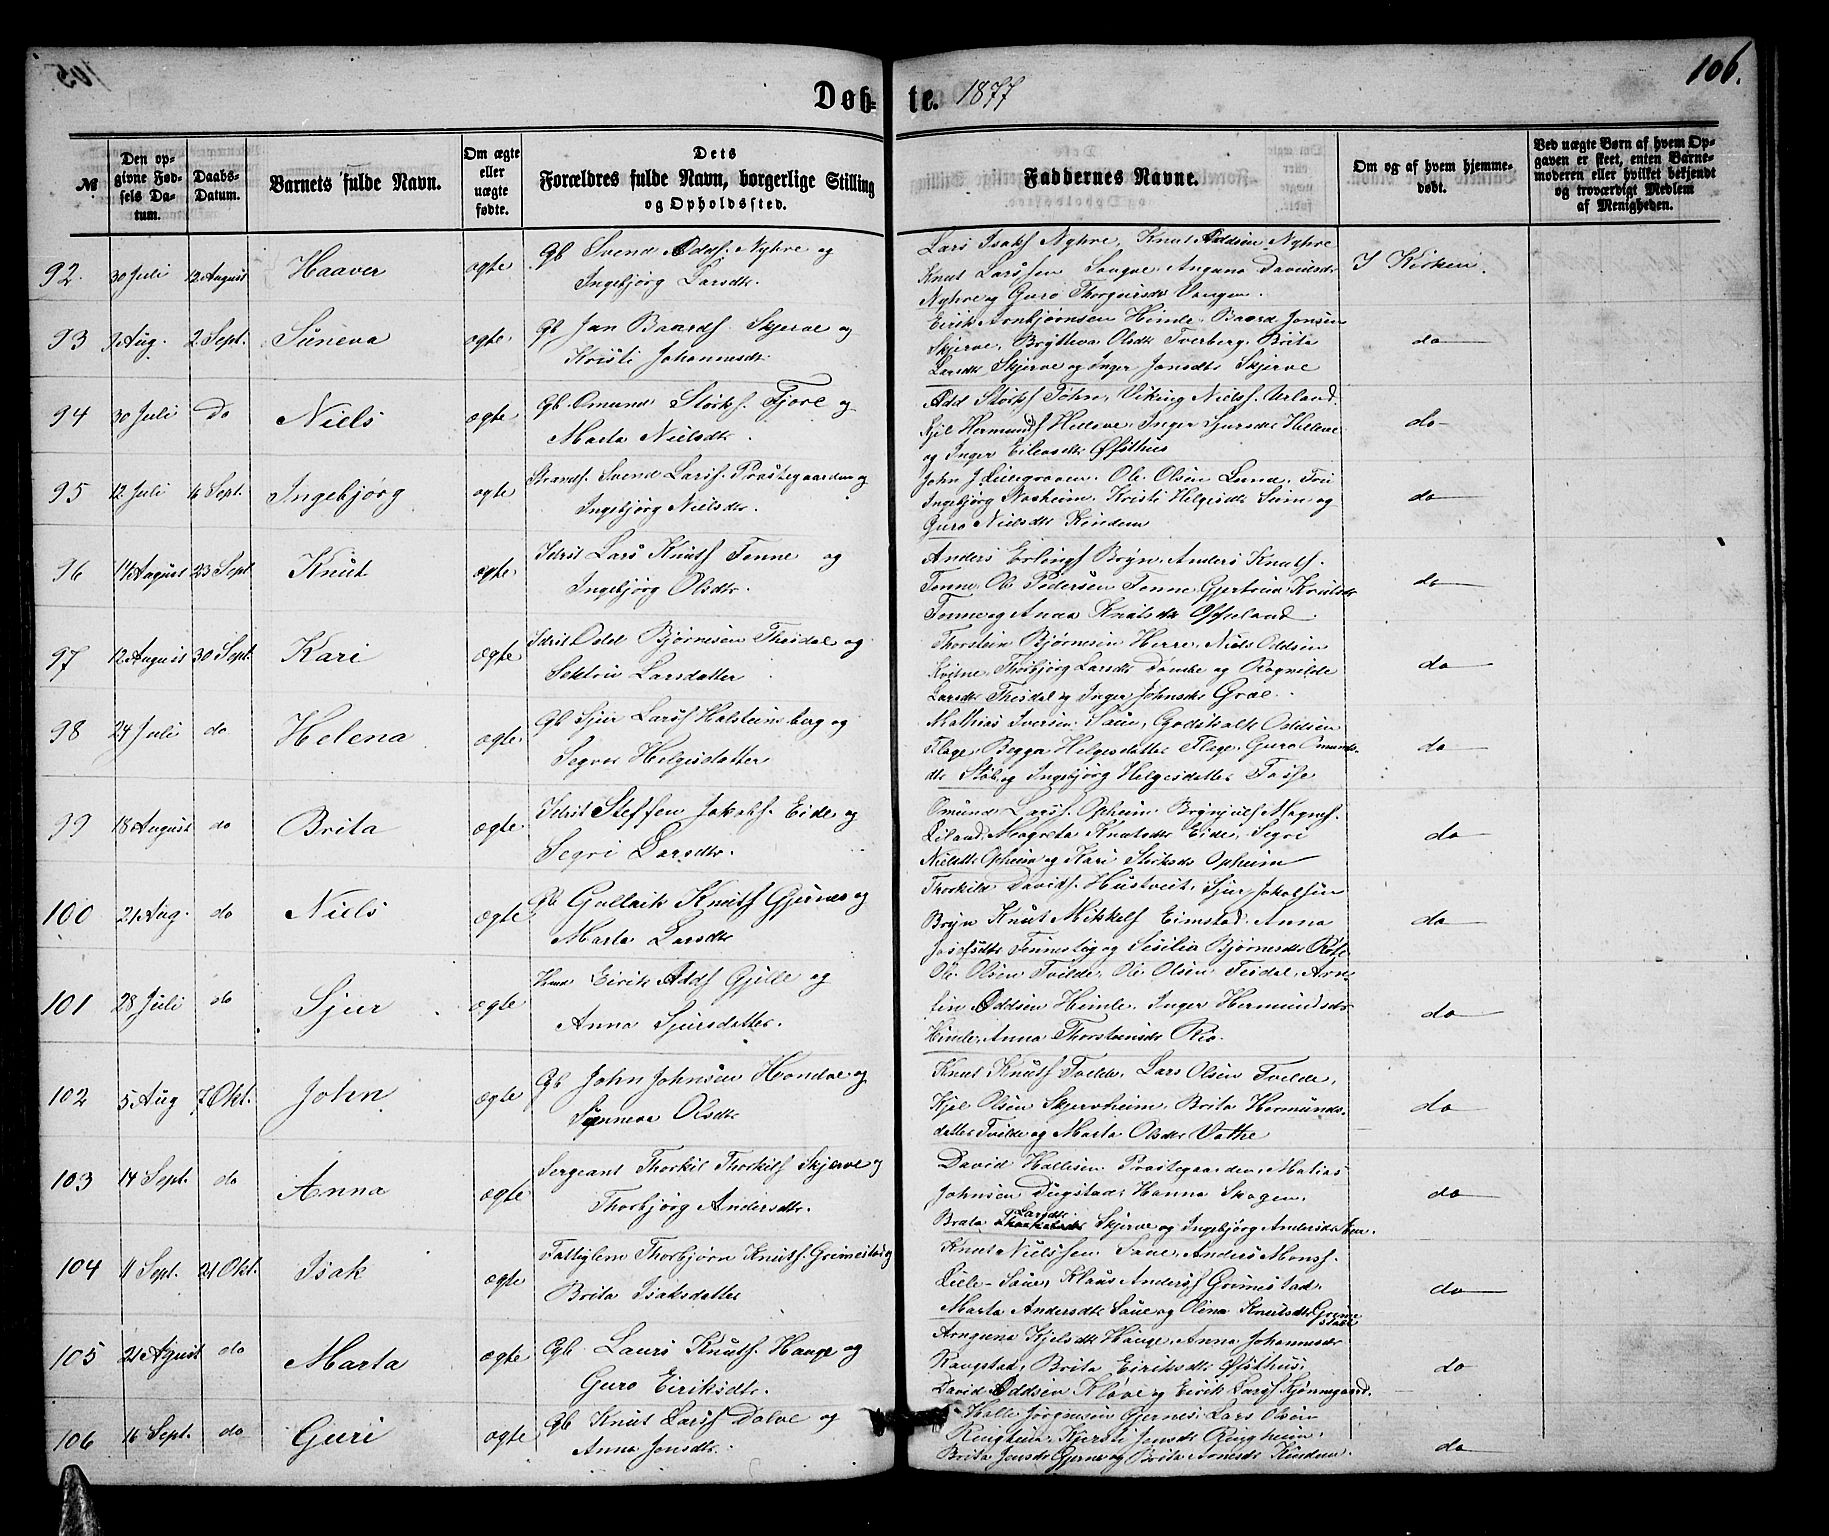 106.
Døb- te. 1877
№
Den opgivne Fødsels Datum.
Daabs-Datum.
Barnets fulde Navn.
Om ægte eller uægte fødte.
Dets Forældres fulde Navn, borgerlige Stilling og Opholdssted.
Faddernes Navne.
Om og af hvem hjemmedøbt.
Ved uægte Børn af hvem Opgaven er skeet, enten Barnemoderen eller hvilket bekjendt og troværdigt Medlem af Menigheden.
92. 30 Juli 12 August Haaver ægte Gb Svend Odds. Nyhre og
Ingebjørg Larsdtr.
Lars Isaks Nyhre, Knut Oddsen Nyhre
Knut Larssen Saugve, Angana Davidsdr
Nyhre og Guro Thorgeirsdr Vangen.
I Kirken.
93 9 Aug. 2 Sept. Süneva ægte Gb Jan Baards. Skjerve og
Kristi Johannesdtr
Eirik Arnbjørnsen Himle, Baard Jonsen
Skjerve, Brytteva Olsdtr Tverberg, Brita
Larsdtr Skjerve og Inger Jonsdtr Skjerve
do
94 30 Juli Do Niels ægte Gb Omund Størks. Fjore og
Marta Nielsdtr.
Odd Størks Tøhn, Viking Niels. Urland.
Kjel Hermunds Helleve, Inger Sjursdtr Helleve
og Inger Eileosdtr Øfsthus
do
95 12 Juli 16 Sept. Ingebjørg ægte Strands. Svend Larss. Præstegaarden og
Ingebjørg Nielsdtr.
John J. Lillegraven, Ole Olsen Lunde, Fru
Ingebjørg Naskeim, Kristi Helgesdtr Sæm og
Guro Nielsdtr Kindem
do
96 14 August 23 Sept Knut ægte Idrst Lars Knuts Tonne og
Ingebjørg Olsdtr.
Anders Erlings Bryn, Anders Knuts.
Tonne, Ol Pedersen Tonne, Gjertrud Knutsdr
Tonne og Anna Knutsdtr Øfsland
do
97 12 August 30 Sept. Kari ægte Idrst Odd Bjørnesen Thesdal og
Larsdatter
Thorstein Bjørnesen Herre, Niels Oddsen
Kvitne, Thorbjørg Larsdtr Dønske og Ragnilde
Larsdtr Thesdal og Inger Johnsdtr Grøe.
do
98 24 Juli do Helena ægte Gb Sjur Larss Halsteinsberg og
Segvor Helgesdatter
Mathias Iversen Saue, Godskalk Oddsen
Flage, Begga Helgesdatter Flage, Guro Omunds-
dtr Støb og Ingebjørg Helgesdatter Fosse
do
99 18 August do Brita ægte Idrst Steffen Jakobs Eide og
Segri Larsdtr.
Omund Larss. Opheim, Brynjulf Magnes.
Liland, Magreta Knutsdtr Eide, Segri
Nielsdtr Opheim og Kari Størksdr Opheim
do
100 21 Aug. do Niels ægte Gb Gullaik Knuts Gjernes og
Marta Larsdtr
Thorkild Davids. Hustveit, Sjur Jakobsen
Bryn, Knut Mikkels Eimstad, Anna
Josefsdtr Finneteig og Sesilia Bjørnesdtr Røte
do
101 28 Juli do Sjur ægte Eirik Odds Gjelle og
Anna Sjursdatter.
Ole Olsen Tvilde, Ole Olsen Tesdal, Arne-
tin Oddsen Himle, Inger Hermundsdtr
Himle, Anna Thorsteinsdtr Rio.
do
102 5 Aug 7 Okt. John ægte Gb John Johnsen Hondve og
Synneva Olsdtr
Knut Knuts Tvilde, Lars Olsen Tvilde,
Kjel Olsen Skjervheim, Brita Hermunds-
datter Tvilde og Marta Olsdtr Væthe
do
103 14 Sept. do Anna ægte Sergeant Thorkil Thorkils Skjerve og
Thorbjørg Andersdtr.
David Hallesen Præstegaarden, Matias
Johnsen Dugstad, Hanna Skogen,
Brata Larsdtr. Skjerve og Ingebjørg Andersdtr
do
104 11 Sept. 21 Okt. Isak ægte Fattiglem Thorbjørn Knuts. Grimestad og
Brita Isaksdatter
Knut Nielssen Saue, Anders Mons.
Lille-Saue, Klaus Anders Grimestad,
Marta Andersdtr Saue og Olina Knutsdtr Grimestad
do
105 21 August do Marta ægte Gb Laurs Knuts. Hauge og
Guro Eiriksdtr.
Arngiena Kjelsdtr Hauge, Anna Johannesdr
Rangstad, Brita Eiriksdtr Øfsthus,
David Oddsen Kløve og Eirik Larss Kjønnegaard.
do
106 16 Sept. do Guri ægte Gb Knut Larss Dalve og
Anna Jonsdtr.
Halle Jørgensen Gjernes, Lars Olsen
Ringheim, Kjersti Jonsdtr Ringheim,
Brita Jonsdtr Gjerne og Brita Arnesdtr Kindem.
do